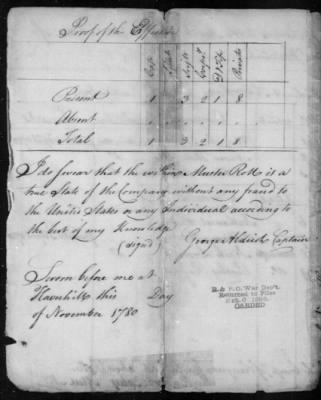 Proof of the Effectives
Capt Lieut Serjts Corpls D & Fifs Privates
Present 1 . 3 2 1 8
Absent . . . . . .
Total 1 . 3 2 1 8
I do swear that the within Muster Roll is a
true State of the Company without any fraud to
the United States or any Individual according to
the best of my Knowledge
(signd) George Aldrich Captain
Sworn before me at
Haverhill this Day
of November 1780
R. & P. O. War Dep't.
Returned to Files
CARDED